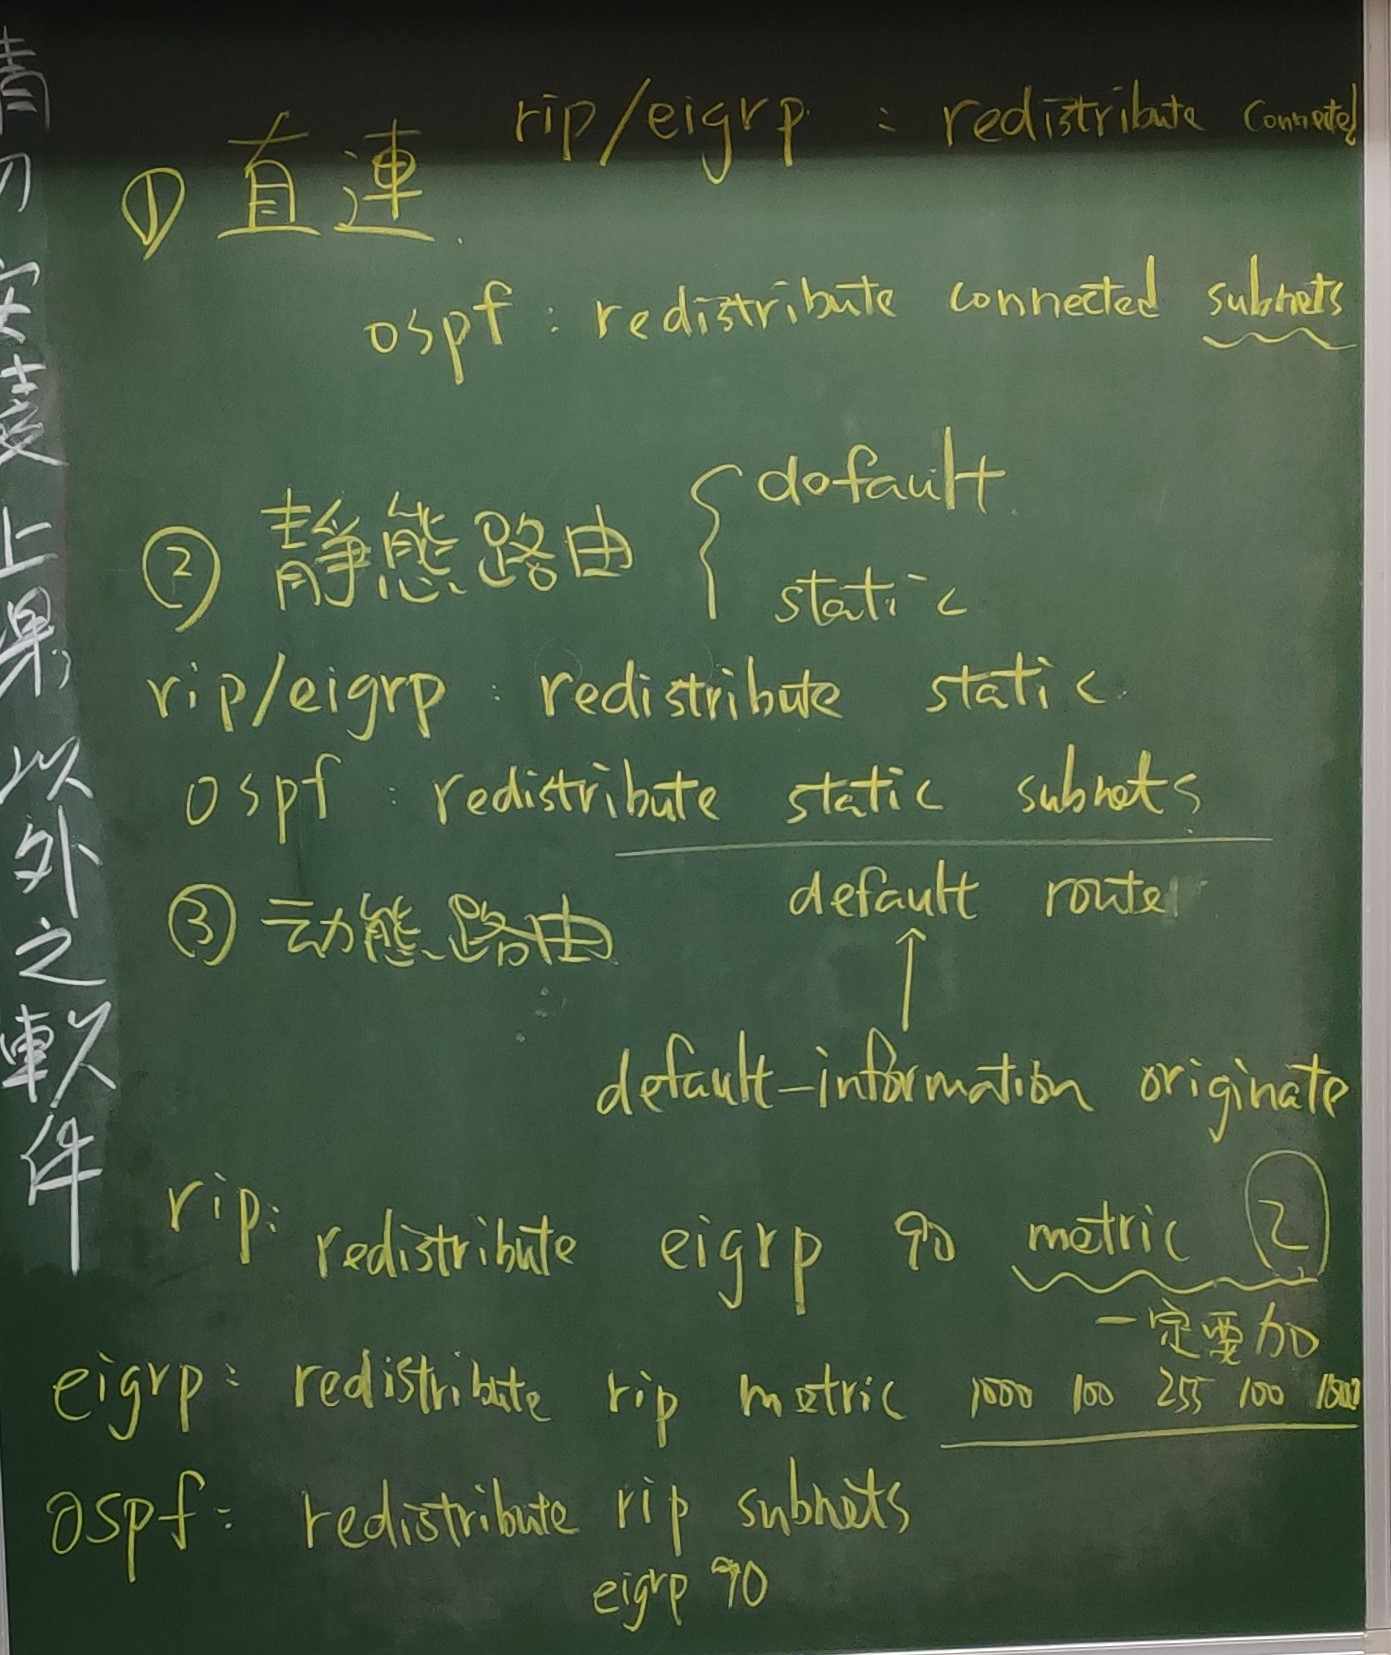 ① 直連 rip/eigrp : redistribute connected
ospf : redistribute connected subnets
② 靜態路由 { dofault
static
rip/eigrp : redistribute static
ospf : redistribute static subnets
③ 动態路由 default route
↑
default-information originate
rip: redistribute eigrp 90 metric 2
一定要加
eigrp: redistribute rip metric 1000 100 255 100 1500
ospf: redistribute rip subnets
eigrp 90
安裝上課以外之軟件